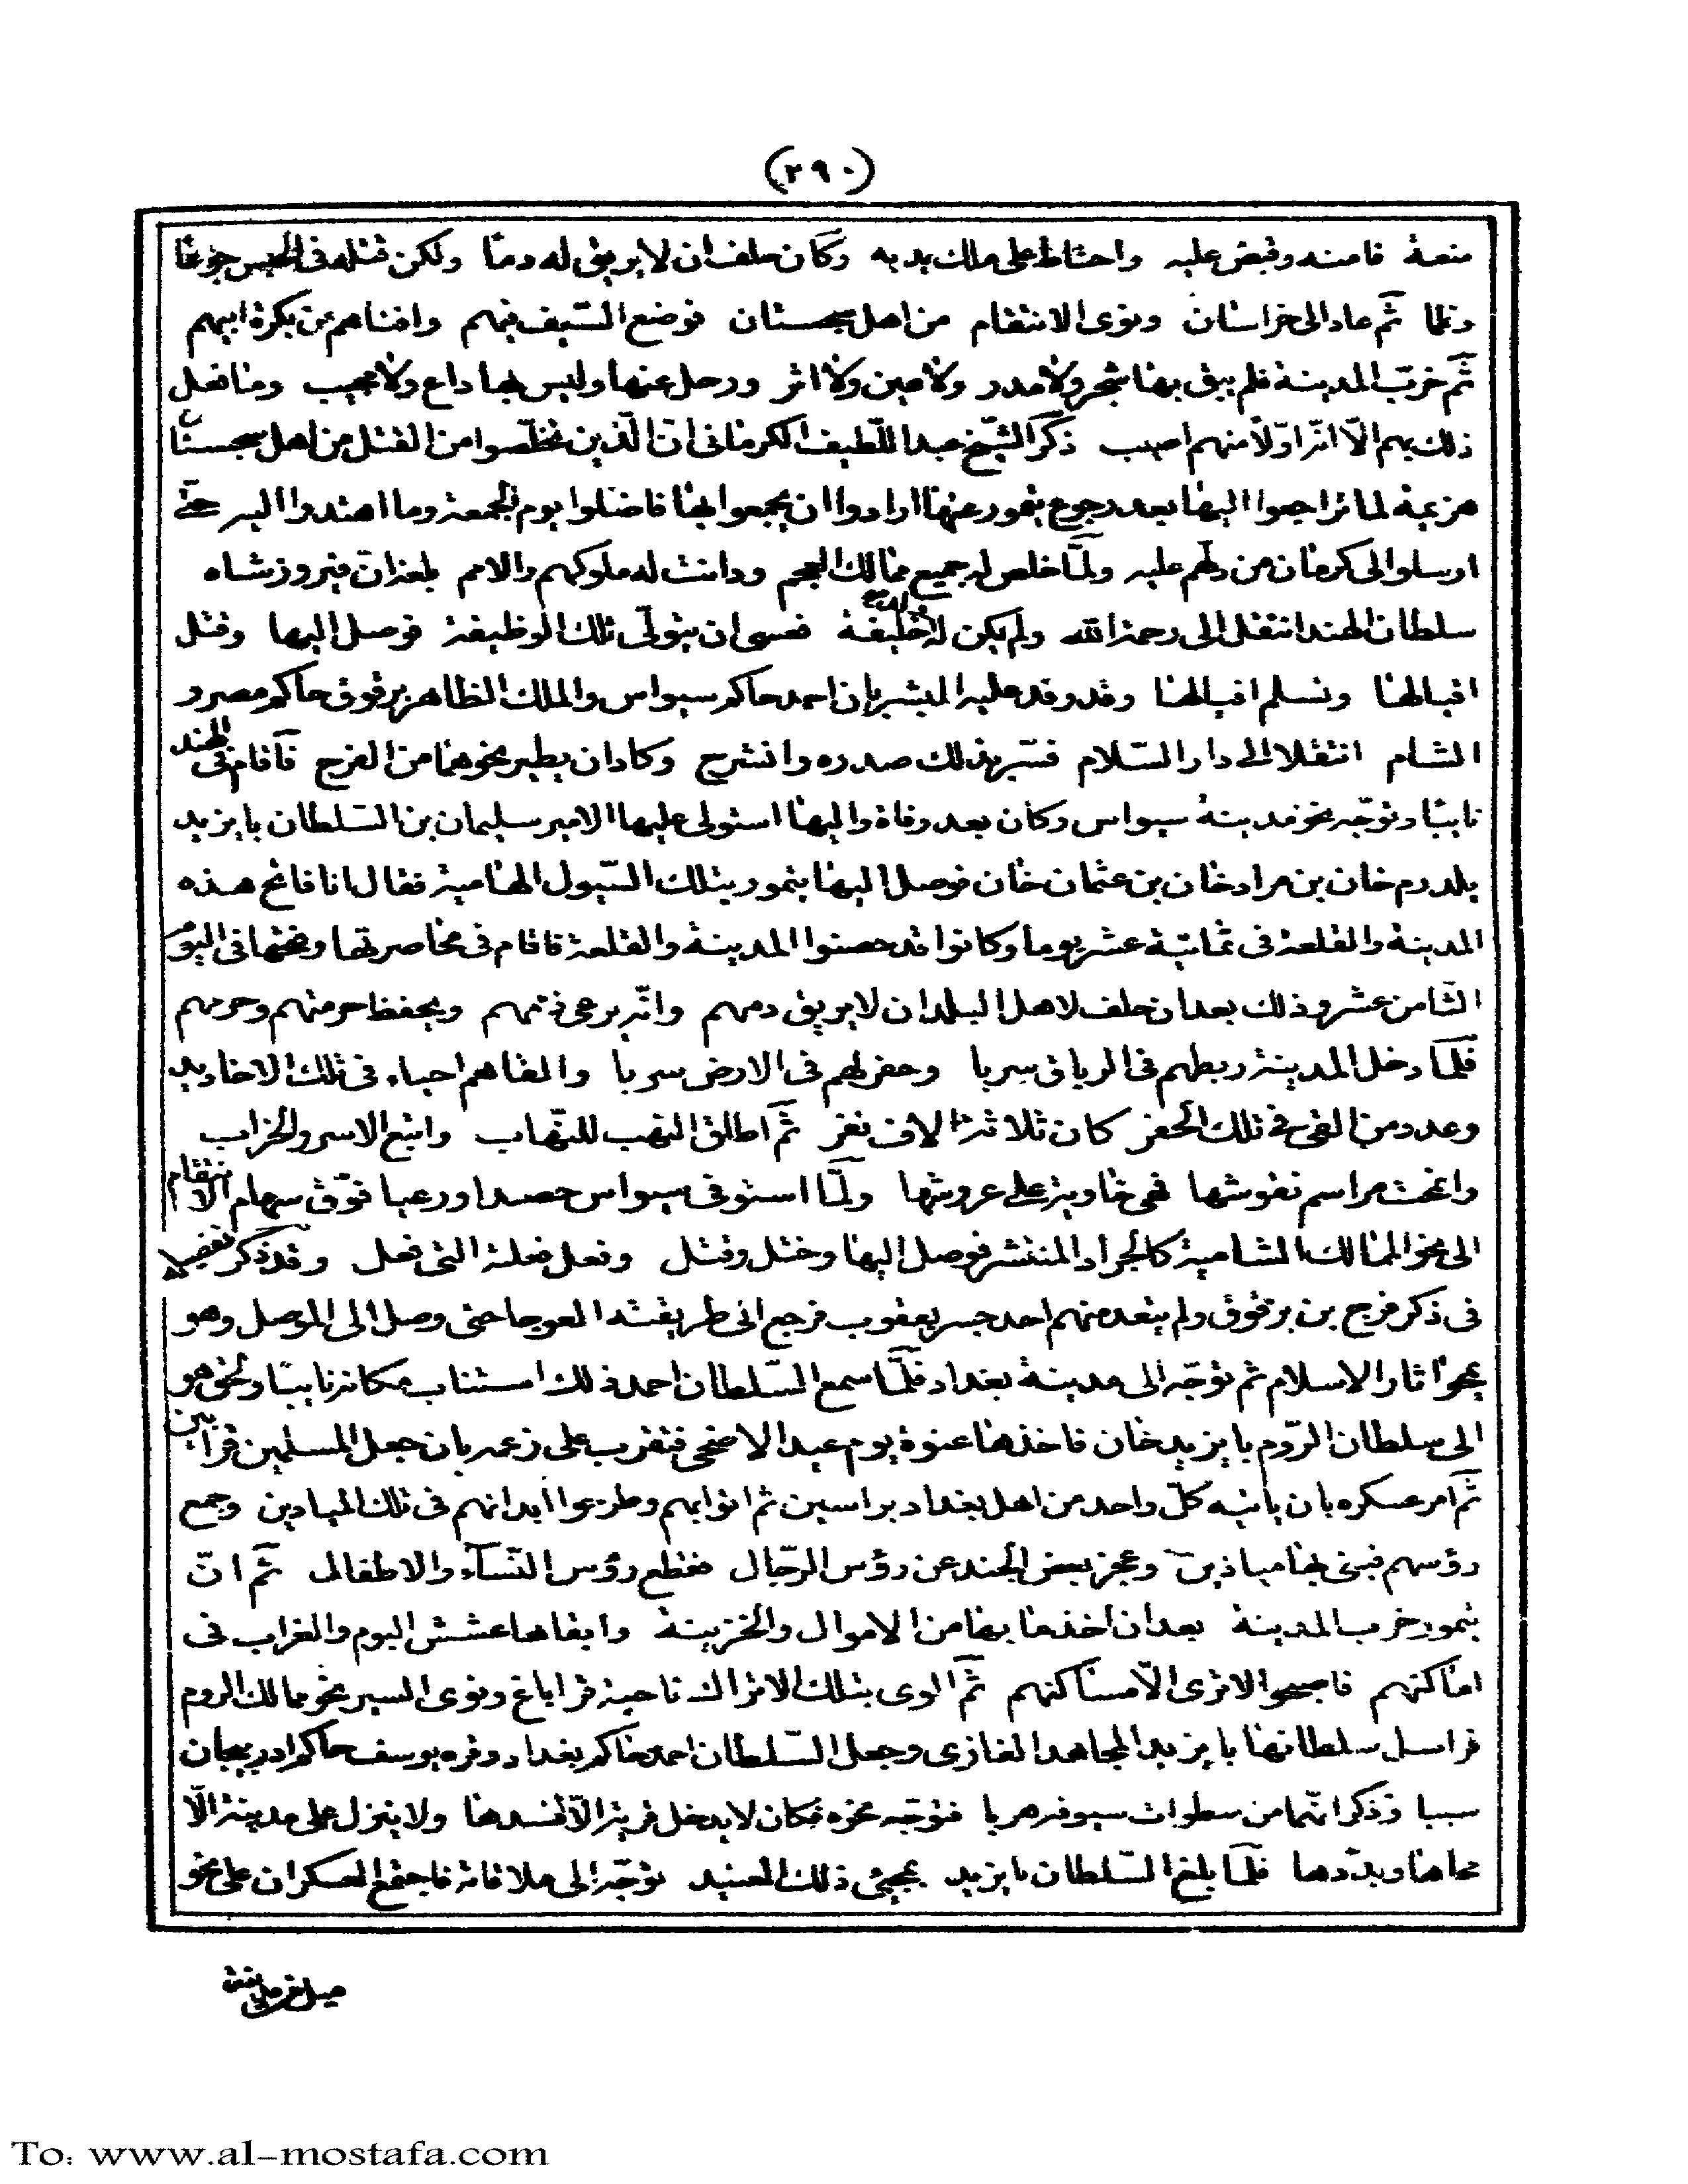 (٢٩٠)
منعة فامنه وقبض عليه واحتاط على ملك يديه وكان حلف ان لا يريق له دما ولكن قتله فى الحبس جوعا
وظما ثم عاد الى خراسان ونوى الانتقام من اهل سجستان فوضع السيف فيهم وافناهم عن بكرة ابيهم
ثم خرب المدينة فلم يبق بها شجر ولا مدر ولا عين ولا اثر ورحل عنها وليس بها داع ولا مجيب وما فعل
ذلك بهم الا انه اولا منهم اصيب ذكر الشيخ عبد اللطيف الكرمانى ان الذين تخلصوا من القتل من اهل سجستان
هزيمة لما تراجعوا اليها بعد رجوع تيمور عنها ارادوا ان يجمعوا بها فاضلوا يوم الجمعة وما اهتدوا اليه حتى
ارسلوا الى كرمان من دلهم عليه ولما خلص له جميع ممالك العجم ودانت له ملوكهم والامم بلغه ان فيروز شاه
سلطان الهند انتقل الى رحمة الله ولم يكن له ولد خليفة فسعى ان يتولى تلك الوظيفة فوصل اليها وقتل
اقيالها وتسلم افيالها وقد وفد عليه المبشر بان احمد حاكم سيواس والملك الظاهر برقوق حاكم مصر و
الشام انتقلا الى دار السلام فسر بذلك صدره وانشرح وكاد ان يطير نحوهما من الفرح فاقام فى الهند
نايبا وتوجه نحو مدينة سيواس وكان بعد وفاة واليها استولى عليها الامير سليمان بن السلطان بايزيد
يلدرم خان بن مراد خان بن عثمان خان فوصل اليها تيمور بتلك السيول الهامية فقال انا فاتح هذه
المدينة والقلعة فى ثمانية عشر يوما وكانوا قد حصنوا المدينة والقلعة فاقام فى محاصرتها وفتحها فى اليوم
الثامن عشر وذلك بعد ان حلف لاهل البلد ان لا يريق دمهم وانه يرعى ذممهم ويحفظ حرمتهم وحرمهم
فلما دخل المدينة ربطهم فى الرباق سربا وحفر لهم فى الارض سربا والقاهم احياء فى تلك الاخاديد
وعدد من القى فى تلك الحفر كان ثلاثة الاف نفر ثم اطلق النهب للنهاب واتبع الاسر والخراب
وانمحت مراسم نقوشها فهى خاوية على عروشها ولما استوفى سيواس حصدا ورعيا فوق سهام الانتقام
الى نحو الممالك الشامية كالجراد المنتشر فوصل اليها وختل وقتل وفعل فعلة التى فعل وقد ذكر تفصيله
فى ذكر فرج بن برقوق ولم يتعد منهم احد جسر يعقوب فرجع الى طريقته العوجا حتى وصل الى الموصل وهو
يمحوا اثار الاسلام ثم توجه الى مدينة بغداد فلما سمع السلطان احمد ذلك استناب مكانه نايبا ولحق هو
الى سلطان الروم بايزيد خان فاخذها عنوة يوم عيد الاضحى فتقرب على زعمه بان جعل المسلمين قرابين
ثم امر عسكره بان ياتيه كل واحد من اهل بغداد براسين ثم اتوا بهم وطرحوا ابدانهم فى تلك الميادين وجمع
رؤسهم فبنى بها مياذين وعجز بعض الجند عن رؤس الرجال فقطع رؤس النساء والاطفال ثم ان
تيمور خرب المدينة بعد ان اخذ ما بها من الاموال والخزينة وابقاها عشش البوم والغراب فى
اماكنهم فاصبحوا لا ترى الا مساكنهم ثم الوى بتلك الاتراك ناحية قرا باغ ونوى السير نحو ممالك الروم
فراسل سلطانها بايزيد المجاهد الغازى وجعل السلطان احمد حاكم بغداد وقره يوسف حاكم ادربيجان
سببا وذكر انهما من سطوات سيوفه هربا فتوجه نحوه فكان لا يدخل قرية الا افسدها ولا ينزل على مدينة الا
محاها وبددها فلما بلغ السلطان بايزيد بمجيئ ذلك العنيد توجه الى ملاقاته فاجتمع العسكران على نحو
ميل من مدينة
To: www.al-mostafa.com